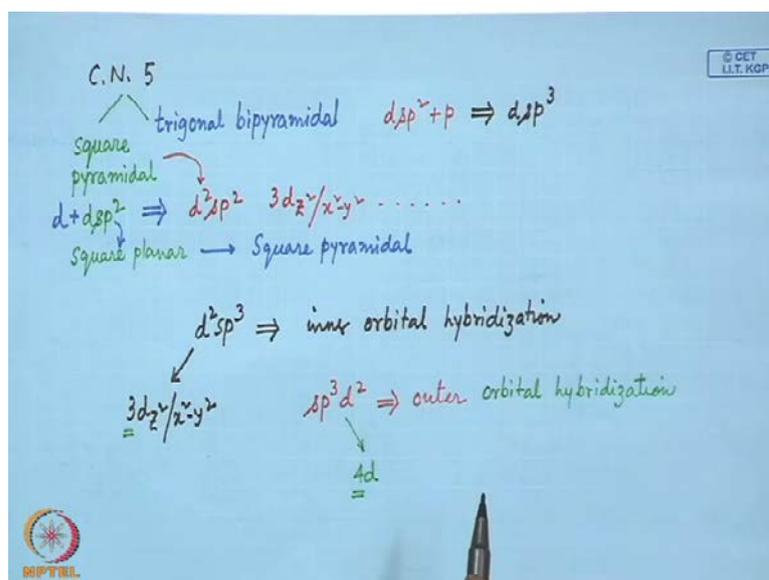 C.N. 5
© CET
I.I.T. KGP
trigonal bipyramidal dsp²+p ⇒ dsp³
square
pyramidal
d+dsp² ⇒ d²sp² 3dz²/x²-y² ......
Square planar → Square pyramidal
d²sp³ ⇒ inner orbital hybridization
3dz²/x²-y²
sp³d² ⇒ outer orbital hybridization
4d
NPTEL